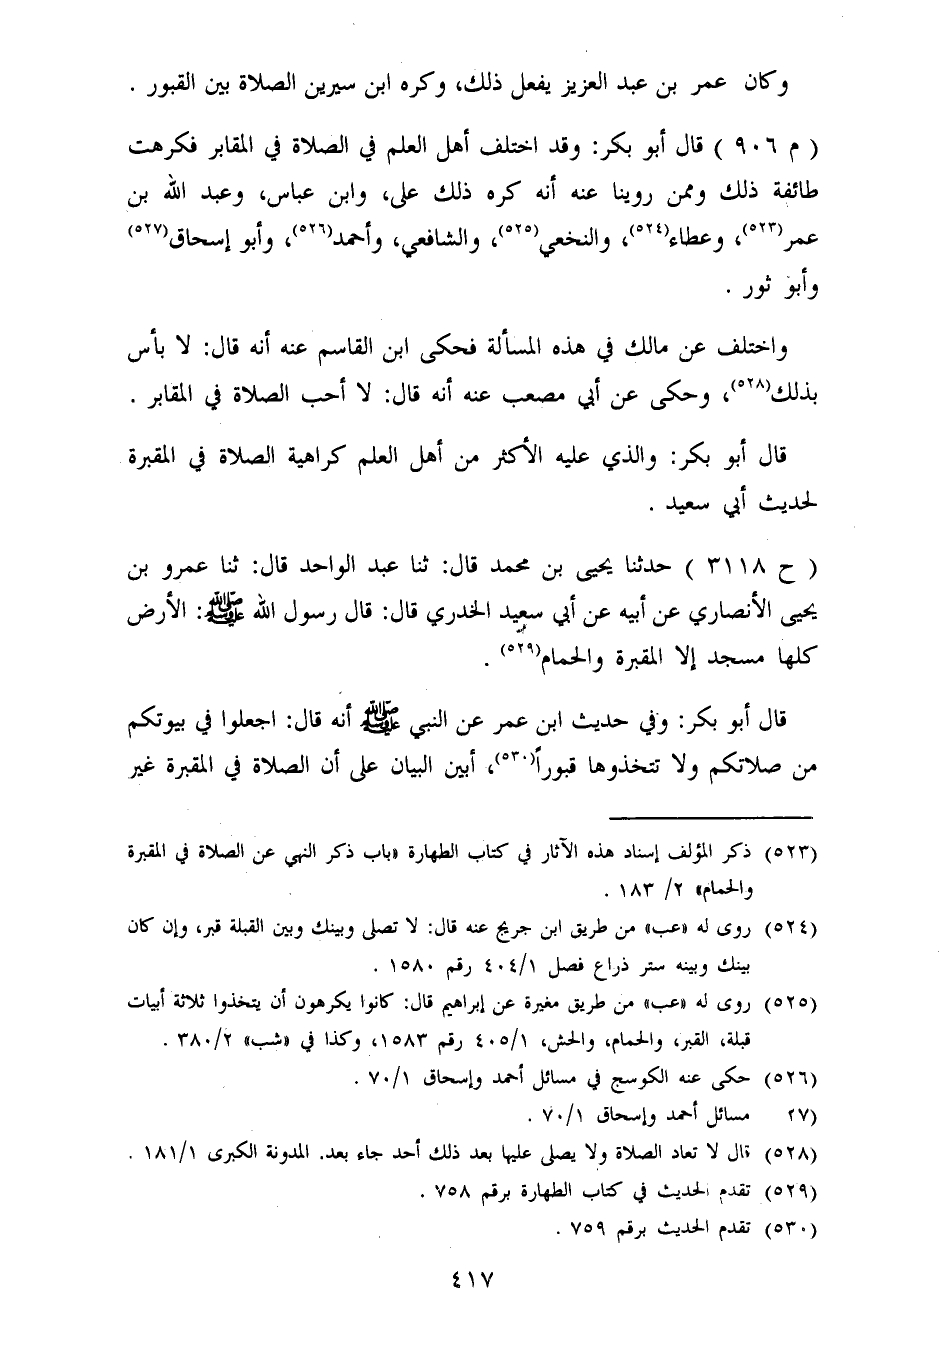 وكان عمر بن عبد العزيز يفعل ذلك، وكره ابن سيرين الصلاة بين القبور .
( م ٩٠٦ ) قال أبو بكر: وقد اختلف أهل العلم في الصلاة في المقابر فكرهت
طائفة ذلك وممن روينا عنه أنه كره ذلك علي، وابن عباس، وعبد الله بن
عمر(٥٢٣)، وعطاء(٥٢٤)، والنخعي(٥٢٥)، والشافعي، وأحمد(٥٢٦)، وأبو إسحاق(٥٢٧)
وأبو ثور .
واختلف عن مالك في هذه المسألة فحكى ابن القاسم عنه أنه قال: لا بأس
بذلك(٥٢٨)، وحكى عن أبي مصعب عنه أنه قال: لا أحب الصلاة في المقابر .
قال أبو بكر: والذي عليه الأكثر من أهل العلم كراهية الصلاة في المقبرة
لحديث أبي سعيد .
( ح ٣١١٨ ) حدثنا يحيى بن محمد قال: ثنا عبد الواحد قال: ثنا عمرو بن
يحيى الأنصاري عن أبيه عن أبي سعيد الخدري قال: قال رسول الله ﷺ: الأرض
كلها مسجد إلا المقبرة والحمام(٥٢٩) .
قال أبو بكر: وفي حديث ابن عمر عن النبي ﷺ أنه قال: اجعلوا في بيوتكم
من صلاتكم ولا تتخذوها قبوراً(٥٣٠)، أبين البيان على أن الصلاة في المقبرة غير
(٥٢٣) ذكر المؤلف إسناد هذه الآثار في كتاب الطهارة «باب ذكر النهي عن الصلاة في المقبرة
والحمام» ٢/ ١٨٣ .
(٥٢٤) روى له «عب» من طريق ابن جريج عنه قال: لا تصلي وبينك وبين القبلة قبر، وإن كان
بينك وبينه ستر ذراع فصل ٤٠٤/١ رقم ١٥٨٠ .
(٥٢٥) روى له «عب» من طريق مغيرة عن إبراهيم قال: كانوا يكرهون أن يتخذوا ثلاثة أبيات
قبلة، القبر، والحمام، والحش، ٤٠٥/١ رقم ١٥٨٣، وكذا في «شب» ٣٨٠/٢ .
(٥٢٦) حكى عنه الكوسج في مسائل أحمد وإسحاق ٧٠/١ .
(٢٧ مسائل أحمد وإسحاق ٧٠/١ .
(٥٢٨) قال لا تعاد الصلاة ولا يصلى عليها بعد ذلك أحد جاء بعد. المدونة الكبرى ١٨١/١ .
(٥٢٩) تقدم الحديث في كتاب الطهارة برقم ٧٥٨ .
(٥٣٠) تقدم الحديث برقم ٧٥٩ .
٤١٧